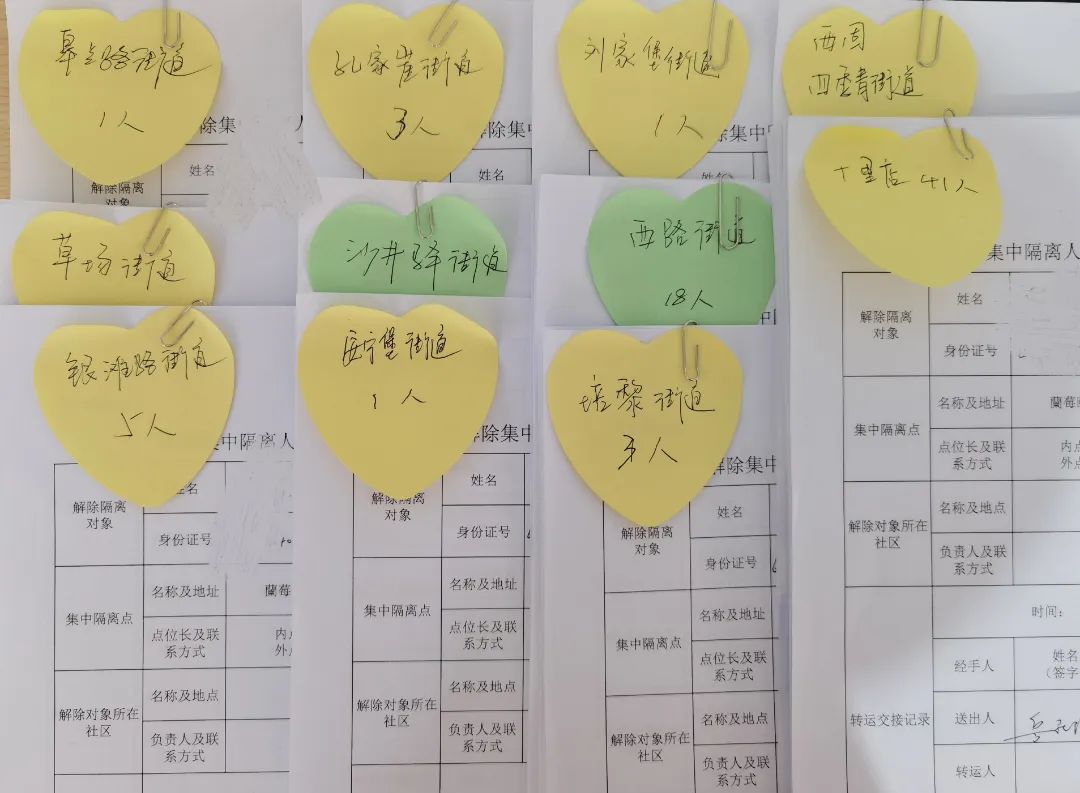 阜兰路街道
1人
孔家崖街道
3人
刘家堡街道
1人
西固
四季青街道
解除集
人
解除集中
解除集中
姓名
姓名
姓名
解除隔离
对象
草场街道
沙井驿街道
西路街道
18人
十里店 41人
集中隔离人
解除隔离
对象
姓名
身份证号
集中隔离点
名称及地址
蘭莓
点位长及联
系方式
内点
外点
解除对象所在
社区
名称及地点
负责人及联
系方式
转运交接记录
时间:
经手人
姓名
(签字
送出人
转运人
银滩路街道
5人
集中隔离人
解除隔离
对象
姓名
身份证号
集中隔离点
名称及地址
蘭莓
点位长及联
系方式
内点
外点
解除对象所在
社区
名称及地点
负责人及联
系方式
安宁堡街道
1人
解除集中
解除隔离
对象
姓名
身份证号
集中隔离点
名称及地址
点位长及联
系方式
解除对象所在
社区
名称及地点
负责人及联
系方式
培黎街道
3人
解除集中
解除隔离
对象
姓名
身份证号
集中隔离点
名称及地址
点位长及联
系方式
解除对象所在
社区
名称及地点
负责人及联
系方式